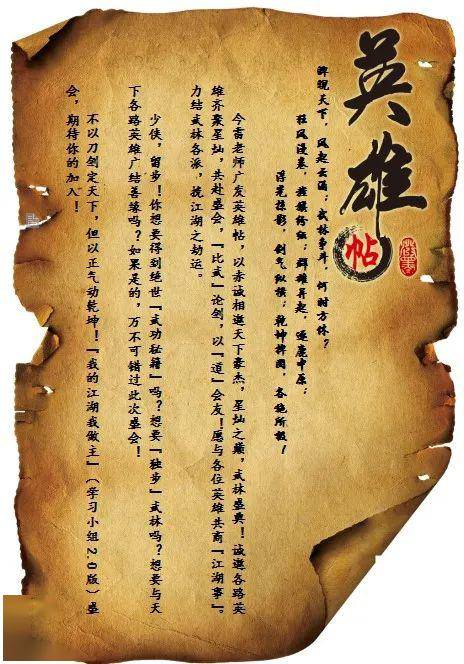 英雄帖
睥睨天下，风起云涌；武林争斗，何时方休？
狂风漫卷，旌旗纷纭；群雄并起，逐鹿中原；
浮光掠影，剑气纵横；乾坤捭阖，各施所极！
今雷老师广发英雄帖，以赤诚相邀天下豪杰，星灿之巅，武林盛典！诚邀各路英
雄齐聚星灿，共赴盛会，「比武」论剑，以「道」会友！愿与各位英雄共商「江湖事」。
力结武林各派，挽江湖之劫运。
少侠，留步！你想要得到绝世「武功秘籍」吗？想要「独步」武林吗？想要与天
下各路英雄广结善缘吗？如果是的，万不可错过此次盛会！
不以刀剑定天下，但以正气动乾坤！「我的江湖我做主」（学习小组2.0版）盛
会，期待你的加入！